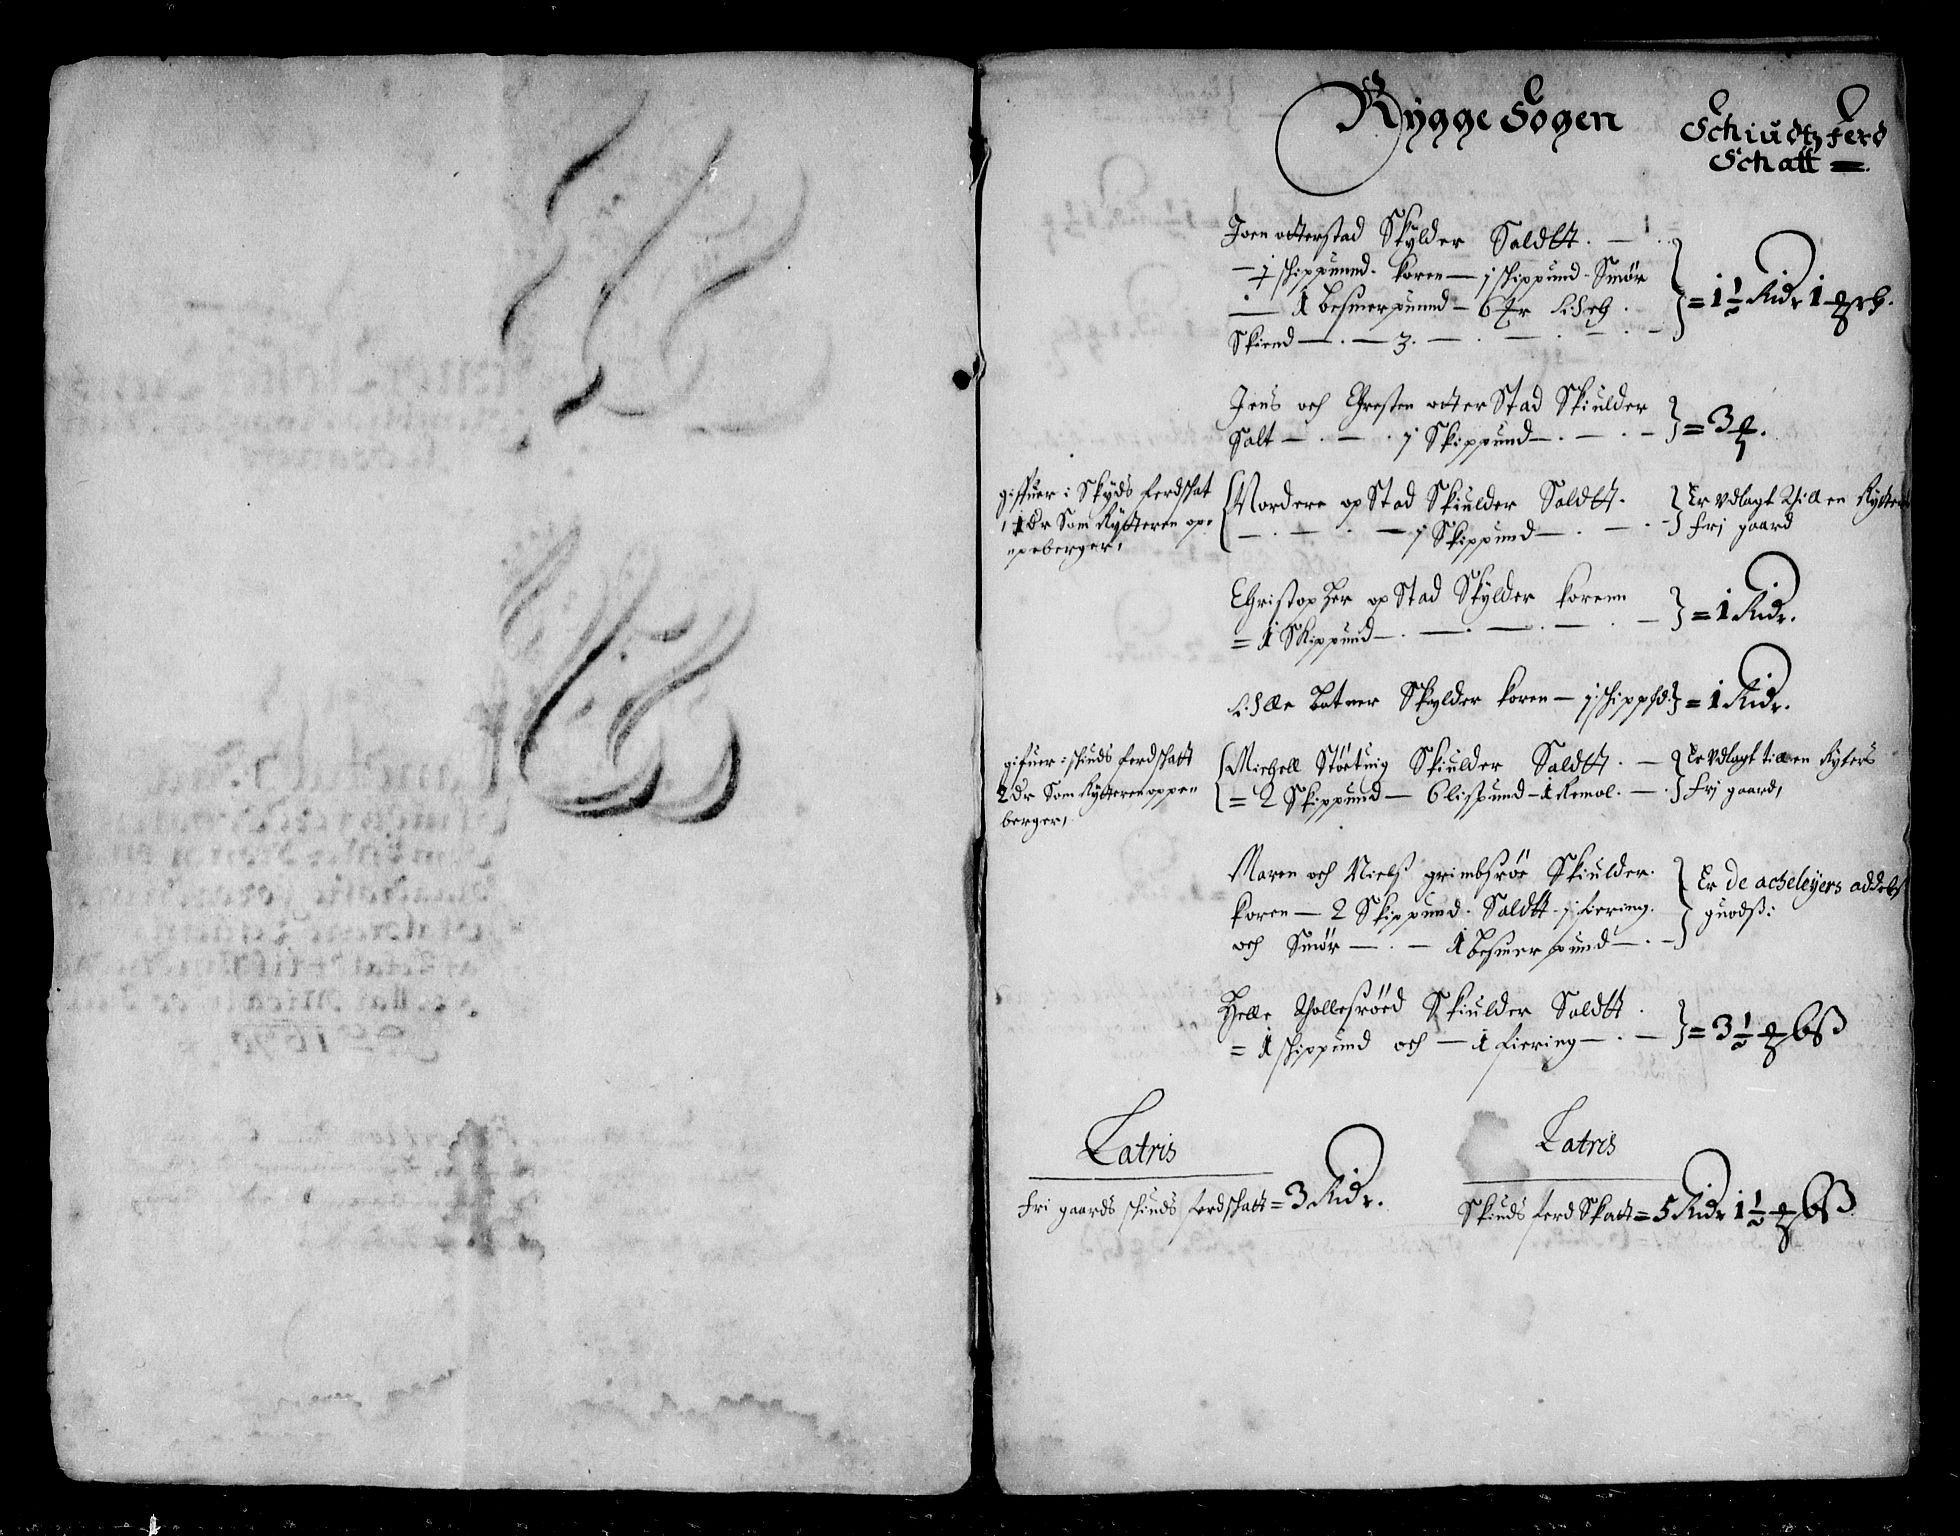 Rygge Sogen
Schiudtzferd
Schatt =
Joen otterstad Skylder Saldtt. — . .
— j schippunnd. koren — j schippund. Smør
— 1 besmerpunnd — 6
Skiend — . — 3. — . — . — . —
= 1½ Rdr 1
Jens och Chresten otterstad Skiulder
Salt — . — . j Skippund — . — . —
= 3
giffuer i Skyds ferdschat
1 dr Som Rytteren op=
peberger,
Nordere opstad Skiulder Saldtt.
— . — . — j Skippund — . — . —
Er vdlagt till en Rytters
frj gaard
Christopher opstad Skylder korenn
= 1 Skippund — . — . — . — . —
= 1 Rdr.
Lille Batner Skylder koren — j schippd.
= 1 Rdr.
gifuer i skiuds ferdschatt
2 dr Som Rytteren oppe=
berger,
Michell Støetuig Skiulder Saldtt. —
= 2 Skippund — 6 lispund — 1 Remol. — .
Er vdlagt till en Ryters
frj gaard,
Maren och Nielss grimbsrøe Skiulder.
koren — 2 Skippund. Saldtt j fiering.
och Smør — . — 1 besmer pund — . —
Er de acheleyers addels
guodss:
Helle Tollesrøed Skiulder Saldtt.
= 1 schippund och — 1 fiering — . —
= 3½ 6ss
Latris
Latris
fri gaards skiuds ferdschatt = 3 Rdr.
Skiuds ferd Skatt = 5 Rdr 1½ 6ss